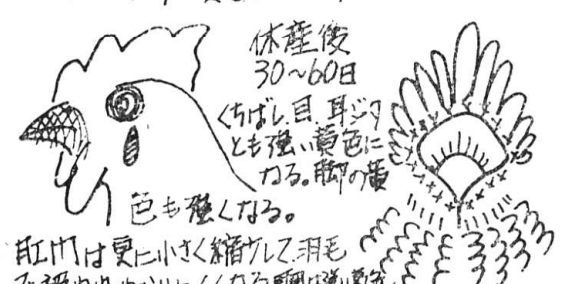 休産後
30〜60日
くちばし、目、耳ジタ
とも強い黄色に
なる。脚の黄
色も強くなる。
肛門は更に小さく縮少して、羽毛